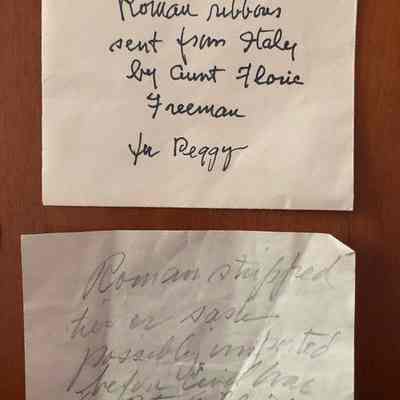 Roman ribbons
sent from Italy
by Aunt Florie
Freeman
for Peggy
Roman stripped
tie or sash
possibly imported
before Civil War